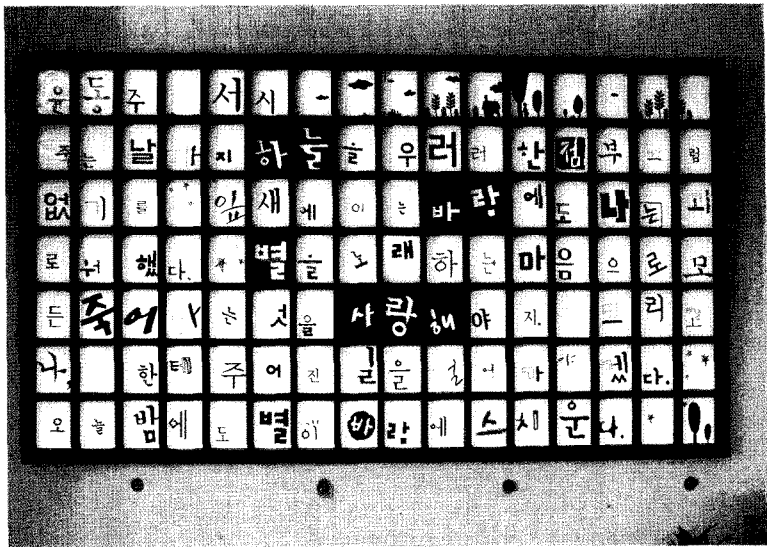 윤동주 서시
죽는 날까지 하늘을 우러러 한 점 부끄럼
없기를 잎새에 이는 바람에도 나는 괴
로워했다. 별을 노래하는 마음으로 모
든 죽어가는 것을 사랑해야지. 그리고
나, 한테 주어진 길을 걸어가야겠다.
오늘 밤에도 별이 바람에 스치운다.